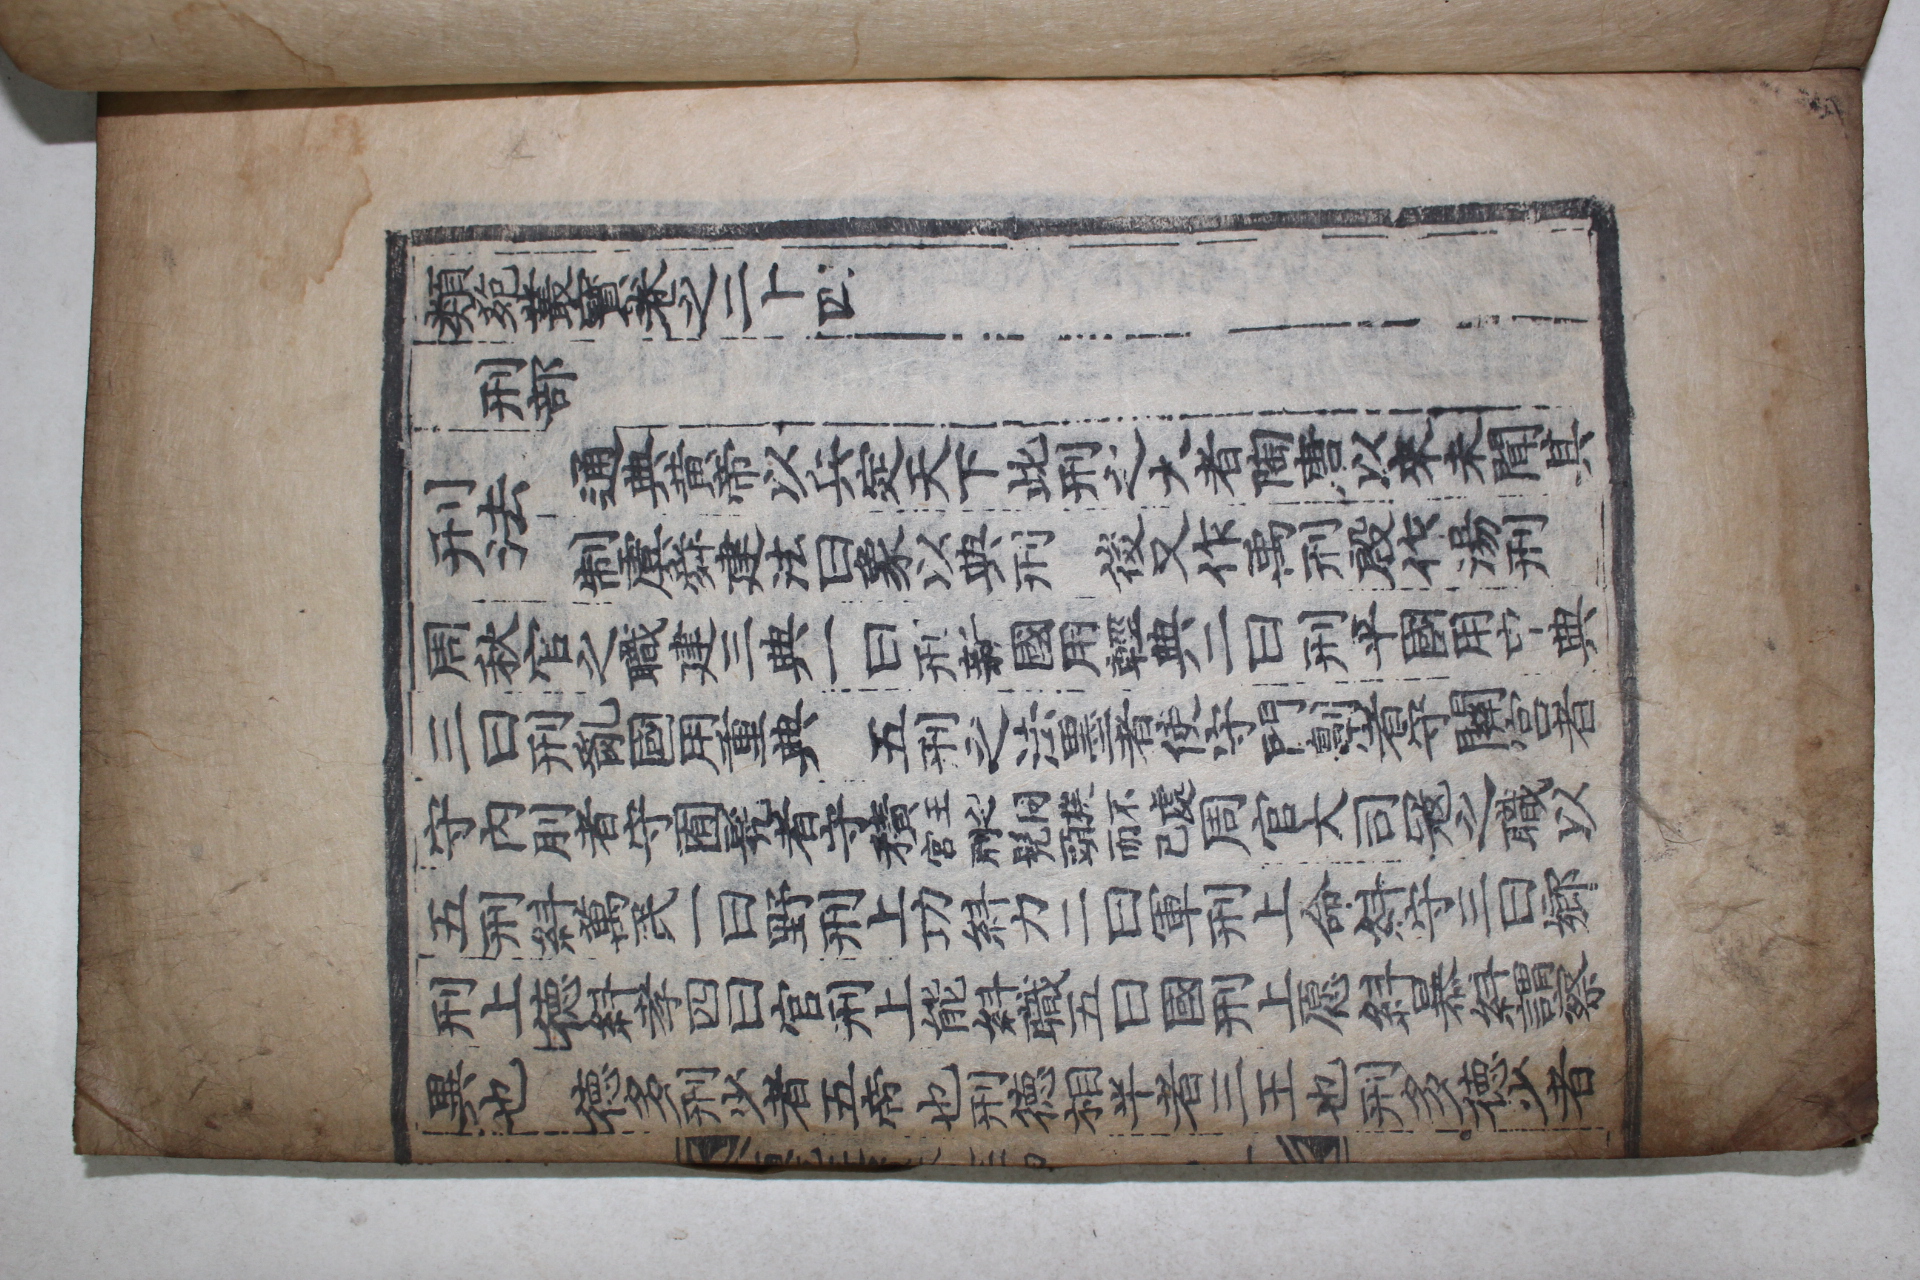 類苑叢寶卷之二十四
刑部
刑法
通典黃帝以兵定天下此刑之大者陶唐以來未聞其
制虞舜建法曰象以典刑 後又作禹刑殷作湯刑
周秋官之職建三典一曰刑新國用輕典二曰刑平國用中典
三曰刑亂國用重典 五刑之法墨者使守門劓者守關宮者
守內刖者守囿髡者守積王之同族不處宮刑髡頭而已周官大司冦之職以
五刑糾萬民一曰野刑上功糾力二曰軍刑上命糾守三曰鄉
刑上德糾孝四曰官刑上能糾職五曰國刑上愿糾暴糾謂察
異也 德多刑少者五帝也刑德相半者三王也刑多德少者